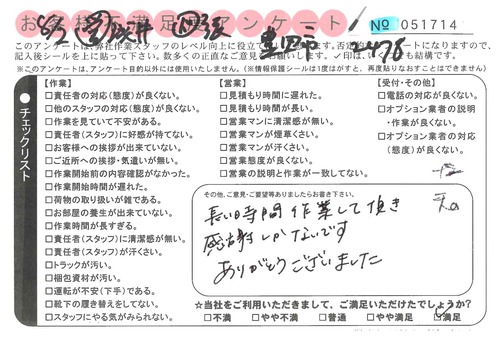 お客様不満足度アンケート
№ 051714
このアンケートは、弊社作業スタッフのレベル向上に役立て
記入後シールを上に貼って下さい。数多くの正直なご意見
※このアンケートは、アンケート目的以外には使用いたしません。(※情報保護シールは1度はがすと、再度貼りなおすことはできません)
チェックリスト
【作業】
□責任者の対応(態度)が良くない。
□他のスタッフの対応(態度)が良くない。
□作業を見ていて不安がある。
□責任者(スタッフ)に好感が持てない。
□お客様への挨拶が出来ていない。
□ご近所への挨拶・気遣いが無い。
□作業開始前の内容確認がなかった。
□作業開始時間が遅れた。
□荷物の取り扱いが雑である。
□お部屋の養生が出来ていない。
□作業時間が長すぎる。
□責任者(スタッフ)に清潔感が無い。
□責任者(スタッフ)が汗くさい。
□トラックが汚い。
□梱包資材が汚い。
□運転が不安(下手)である。
□靴下の履き替えをしてない。
□スタッフにやる気がみられない。
【営業】
□見積もり時間に遅れた。
□見積もり時間が長い。
□営業マンに清潔感が無い。
□営業マンが煙草くさい。
□営業マンが汗くさい。
□営業態度が良くない。
□営業の説明と作業が一致してない。
【受付・その他】
□電話の対応が良くない。
□オプション業者の説明
・作業が良くない。
□オプション業者の対応
(態度)が良くない。
その他、ご意見・ご要望等ありましたらお書き下さい。
長い時間作業して頂き
感謝しかないです
ありがとうございました
☆当社をご利用いただきまして、ご満足いただけたでしょうか?
□不満 □やや不満 □普通 □やや満足 □満足